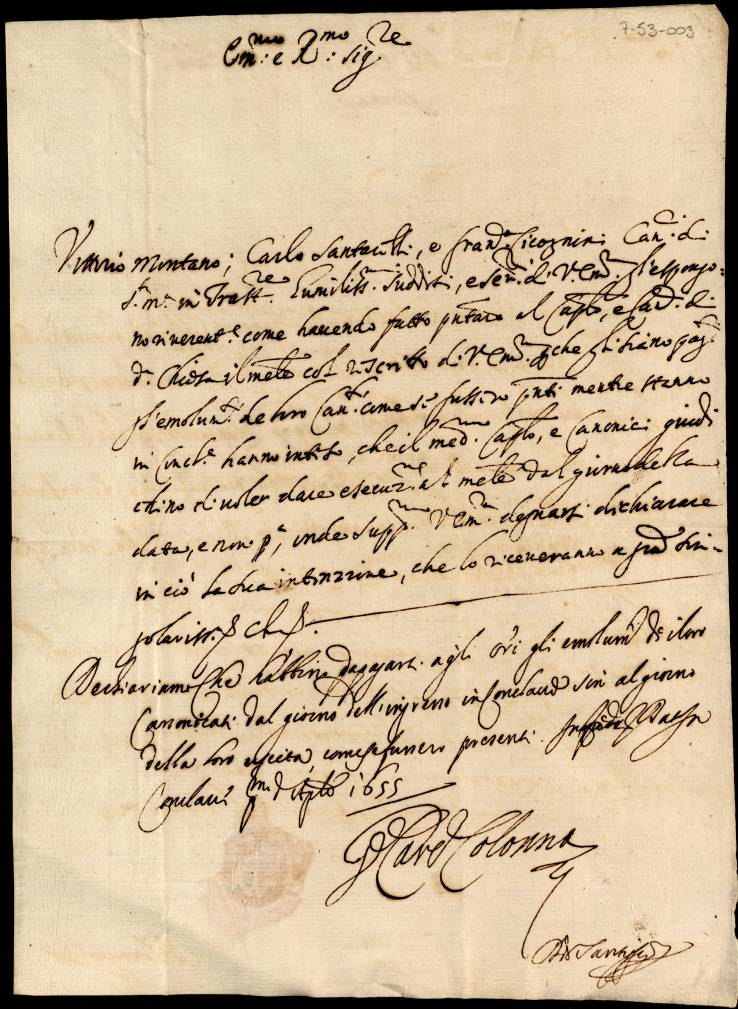 7-53-003
Em:mo e R:mo Sig.re
Vittorio Montano, Carlo Santacilli, e Fran.o Cicognini Can.ci di
S. M.a in Trast.re humiliss.mi sudditi, e ser.ri di V. Em.a l'espongo=
no riverent.e come havendo fatto pntare al Caplo, e Can.ci di
d.a Chiesa il mele col rescritto di V. Em.a che gli siano pag.ti
gl'emolum.ti de loro Can.ti come se fussero pnti mentre stanno
in Concl.e hanno inteso, che il med.mo Caplo, e Canonici
di voler dare esecuz.ne al mele dal giorno della
data, e non p.a, onde supp.no V. Em.a degnarsi dichiarare
in ciò la sua intenzione, che lo riceveranno a grã sin=
golariss.a
Dechiariamo che habbino da pagarsi agli ori gli emolum.ti de i loro
Canonicati dal giorno dell'ingresso in Conclave sin al giorno
della loro uscita, come se fussero presenti. In fede
Conclavi d'Aple 1655
Card Colonna